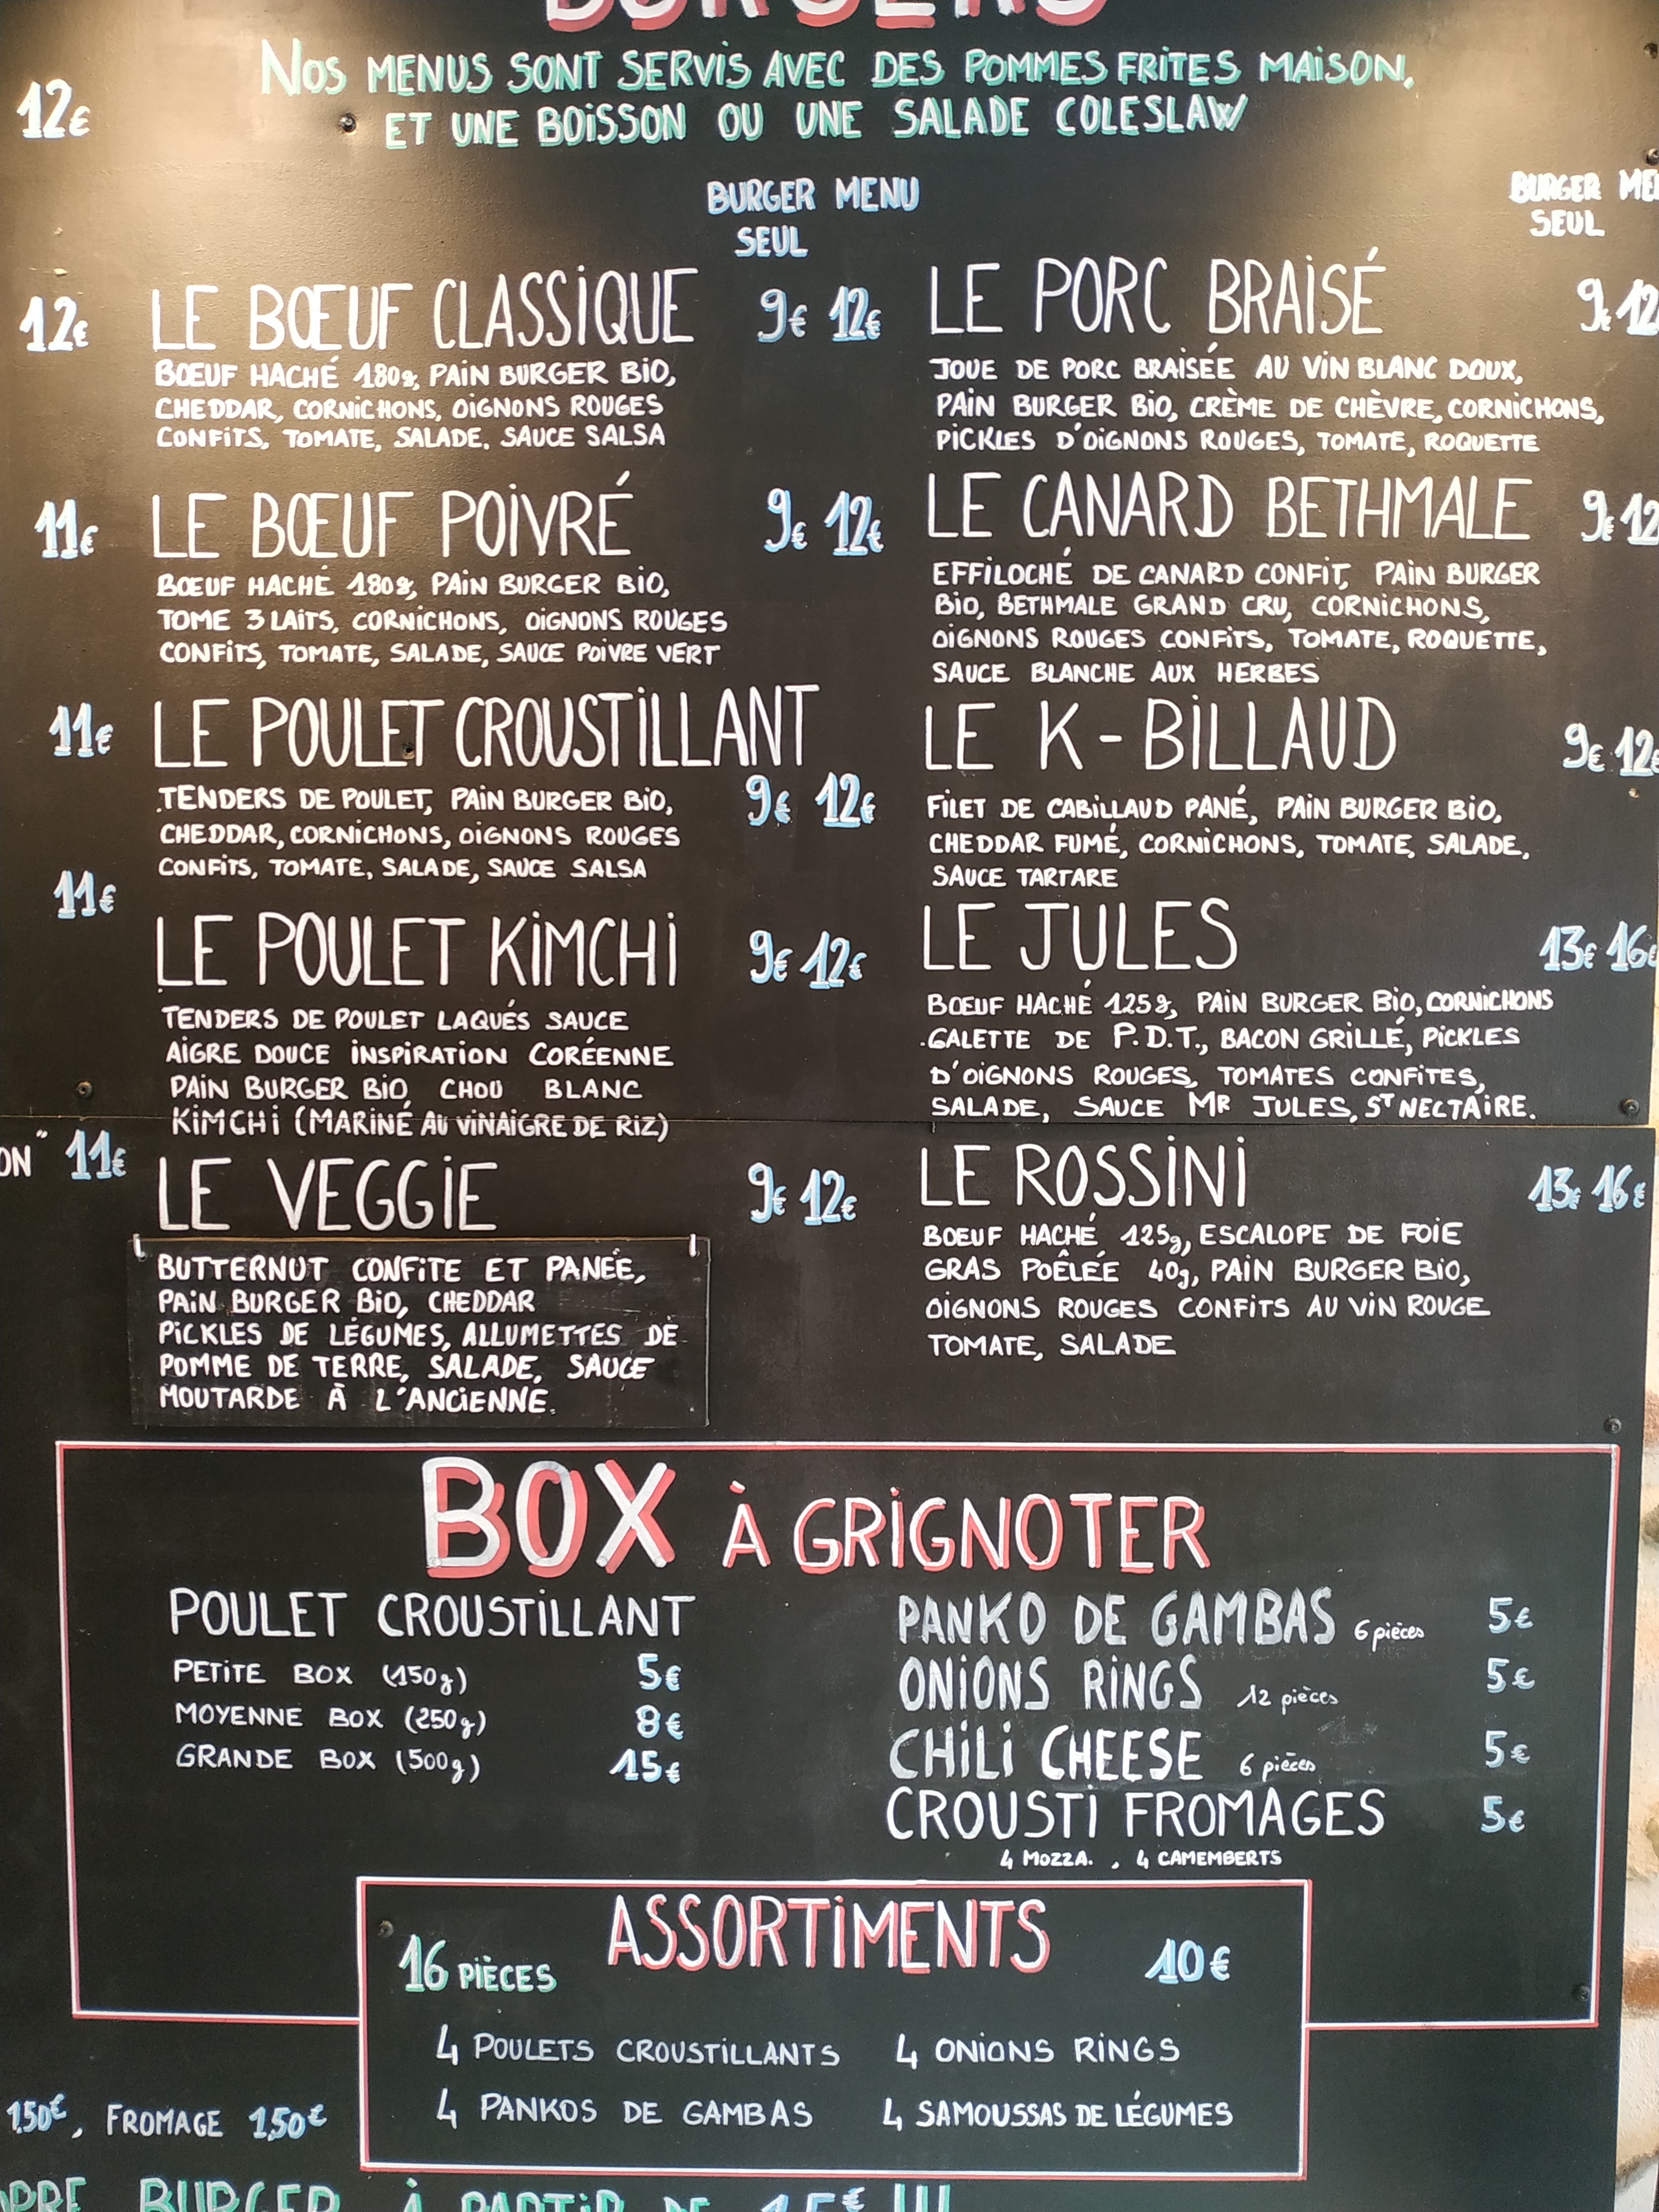 BURGERS
NOS MENUS SONT SERVIS AVEC DES POMMES FRITES MAISON,
ET UNE BOISSON OU UNE SALADE COLESLAW
12€
BURGER MENU
SEUL
BURGER
SEUL
12€
LE BŒUF CLASSIQUE 9€ 12€
BŒUF HACHÉ 180g, PAIN BURGER BIO,
CHEDDAR, CORNICHONS, OIGNONS ROUGES
CONFITS, TOMATE, SALADE. SAUCE SALSA
11€
LE BŒUF POIVRÉ 9€ 12€
BŒUF HACHÉ 180g, PAIN BURGER BIO,
TOME 3 LAITS, CORNICHONS, OIGNONS ROUGES
CONFITS, TOMATE, SALADE, SAUCE POIVRE VERT
11€
LE POULET CROUSTILLANT
9€ 12€
TENDERS DE POULET, PAIN BURGER BIO,
CHEDDAR, CORNICHONS, OIGNONS ROUGES
CONFITS, TOMATE, SALADE, SAUCE SALSA
11€
LE POULET KIMCHI 9€ 12€
TENDERS DE POULET LAQUÉS SAUCE
AIGRE DOUCE INSPIRATION CORÉENNE
PAIN BURGER BIO, CHOU BLANC
KIMCHI (MARINÉ AU VINAIGRE DE RIZ)
ON" 11€
LE VEGGIE 9€ 12€
BUTTERNUT CONFITE ET PANÉE,
PAIN BURGER BIO, CHEDDAR
PICKLES DE LÉGUMES, ALLUMETTES DE
POMME DE TERRE, SALADE, SAUCE
MOUTARDE À L'ANCIENNE.
LE PORC BRAISÉ 9€ 12
JOUE DE PORC BRAISÉE AU VIN BLANC DOUX,
PAIN BURGER BIO, CRÈME DE CHÈVRE, CORNICHONS,
PICKLES D'OIGNONS ROUGES, TOMATE, ROQUETTE
LE CANARD BETHMALE 9€ 12
EFFILOCHÉ DE CANARD CONFIT, PAIN BURGER
BIO, BETHMALE GRAND CRU, CORNICHONS,
OIGNONS ROUGES CONFITS, TOMATE, ROQUETTE,
SAUCE BLANCHE AUX HERBES
LE K-BILLAUD 9€ 12€
FILET DE CABILLAUD PANÉ, PAIN BURGER BIO,
CHEDDAR FUMÉ, CORNICHONS, TOMATE, SALADE,
SAUCE TARTARE
LE JULES 13€ 16€
BŒUF HACHÉ 125g, PAIN BURGER BIO, CORNICHONS
GALETTE DE P.D.T., BACON GRILLÉ, PICKLES
D'OIGNONS ROUGES, TOMATES CONFITES,
SALADE, SAUCE MR JULES, ST NECTAIRE.
LE ROSSINI 13€ 16€
BOEUF HACHÉ 125g, ESCALOPE DE FOIE
GRAS POÊLÉE 40g, PAIN BURGER BIO,
OIGNONS ROUGES CONFITS AU VIN ROUGE
TOMATE, SALADE
BOX À GRIGNOTER
POULET CROUSTILLANT
PETITE BOX (150g) 5€
MOYENNE BOX (250g) 8€
GRANDE BOX (500g) 15€
PANKO DE GAMBAS 6 pièces 5€
ONIONS RINGS 12 pièces 5€
CHILI CHEESE 6 pièces 5€
CROUSTI FROMAGES 5€
4 MOZZA. , 4 CAMEMBERTS
ASSORTIMENTS
16 PIÈCES 10€
4 POULETS CROUSTILLANTS 4 ONIONS RINGS
4 PANKOS DE GAMBAS 4 SAMOUSSAS DE LÉGUMES
1,50€, FROMAGE 1,50€
BURGER À PARTIR DE 15€ !!!